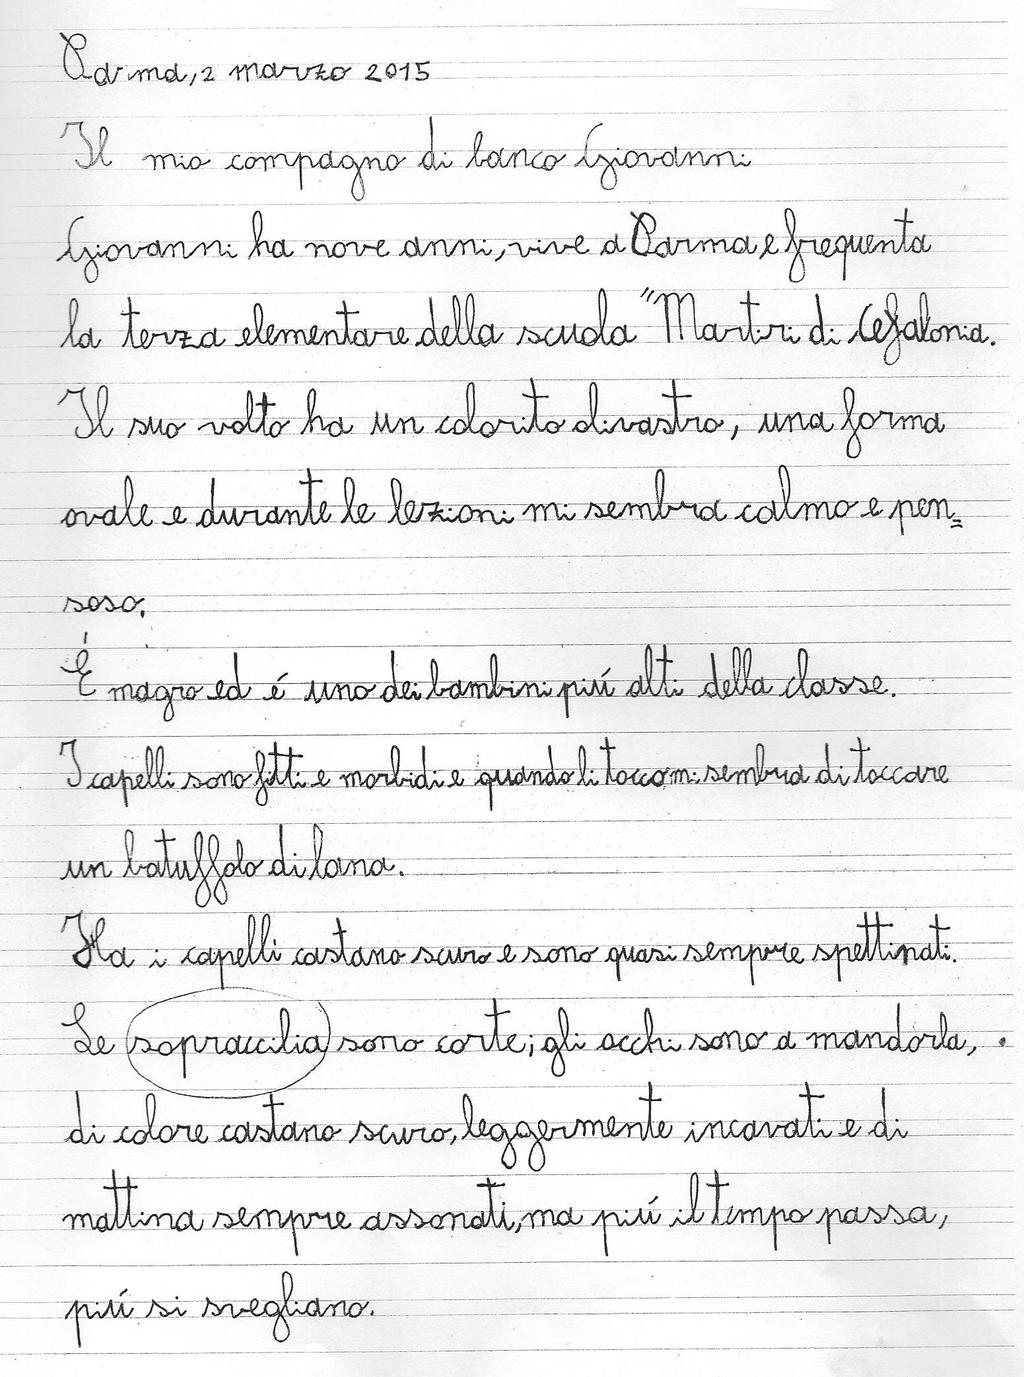 Parma, 2 marzo 2015
Il mio compagno di banco Giovanni
Giovanni ha nove anni, vive a Parma e frequenta
la terza elementare della scuola "Martiri di Cefalonia.
Il suo volto ha un colorito olivastro, una forma
ovale e durante le lezioni mi sembra calmo e pen=
soso.
É magro ed é uno dei bambini piú alti della classe.
I capelli sono fitti e morbidi e quando li tocco mi sembra di toccare
un batuffolo di lana.
Ha i capelli castano scuro e sono quasi sempre spettinati.
Le sopraccilia sono corte; gli occhi sono a mandorla,
di colore castano scuro, leggermente incavati e di
mattina sempre assonati, ma piú il tempo passa,
piú si svegliano.